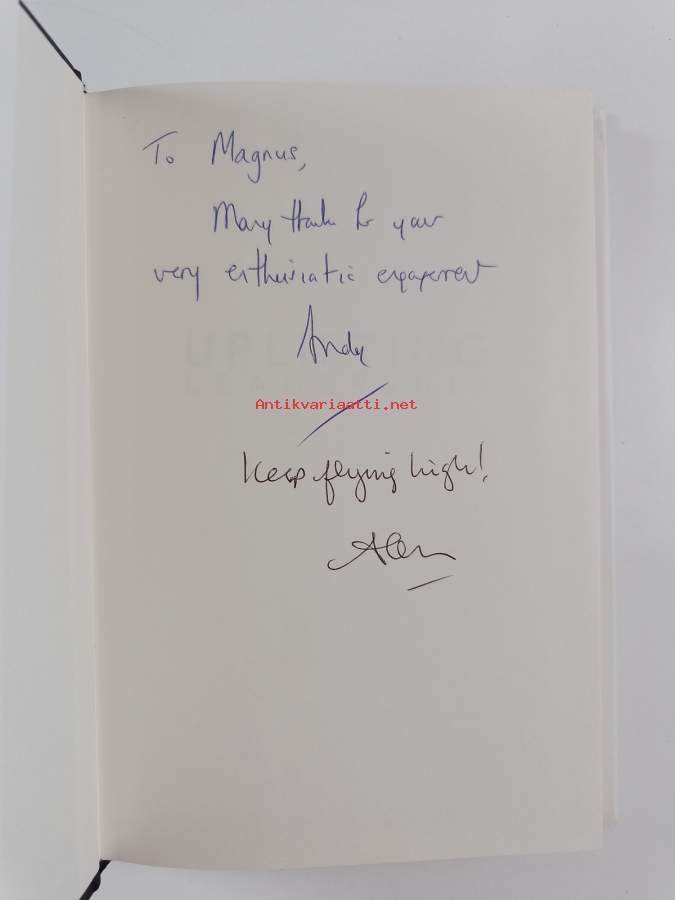 To Magnus,
Many thanks for your
very enthusiastic engagement
Andy
Antikvariaatti.net
Keep flying high!